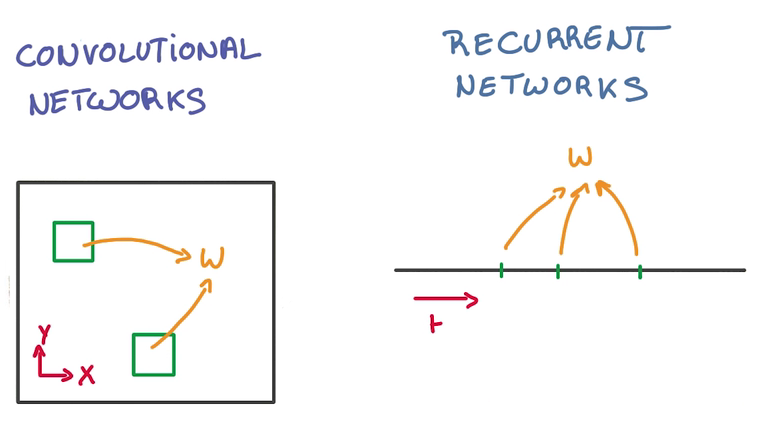 CONVOLUTIONAL
NETWORKS
RECURRENT
NETWORKS
W
Y
X
W
t